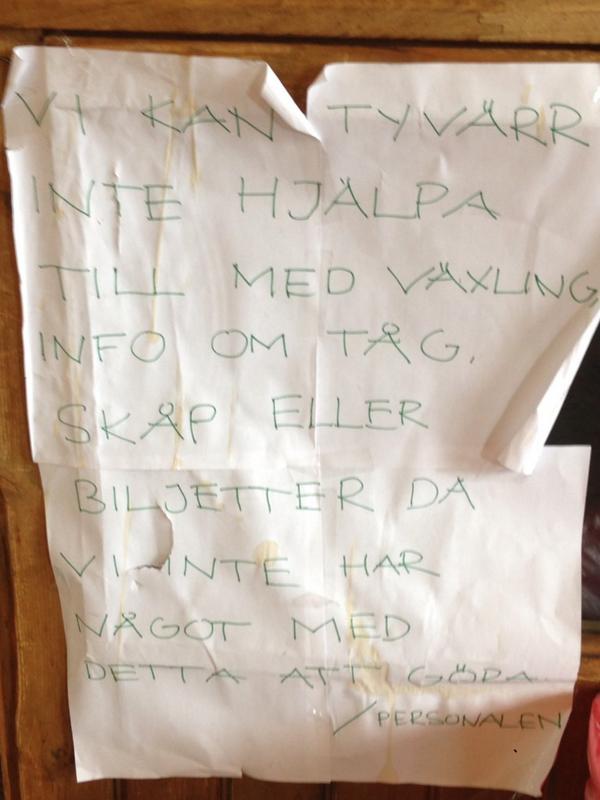 VI KAN TYVÄRR
INTE HJÄLPA
TILL MED VÄXLING,
INFO OM TÅG,
SKÅP ELLER
BILJETTER DÅ
VI INTE HAR
NÅGOT MED
DETTA ATT GÖRA
/PERSONALEN